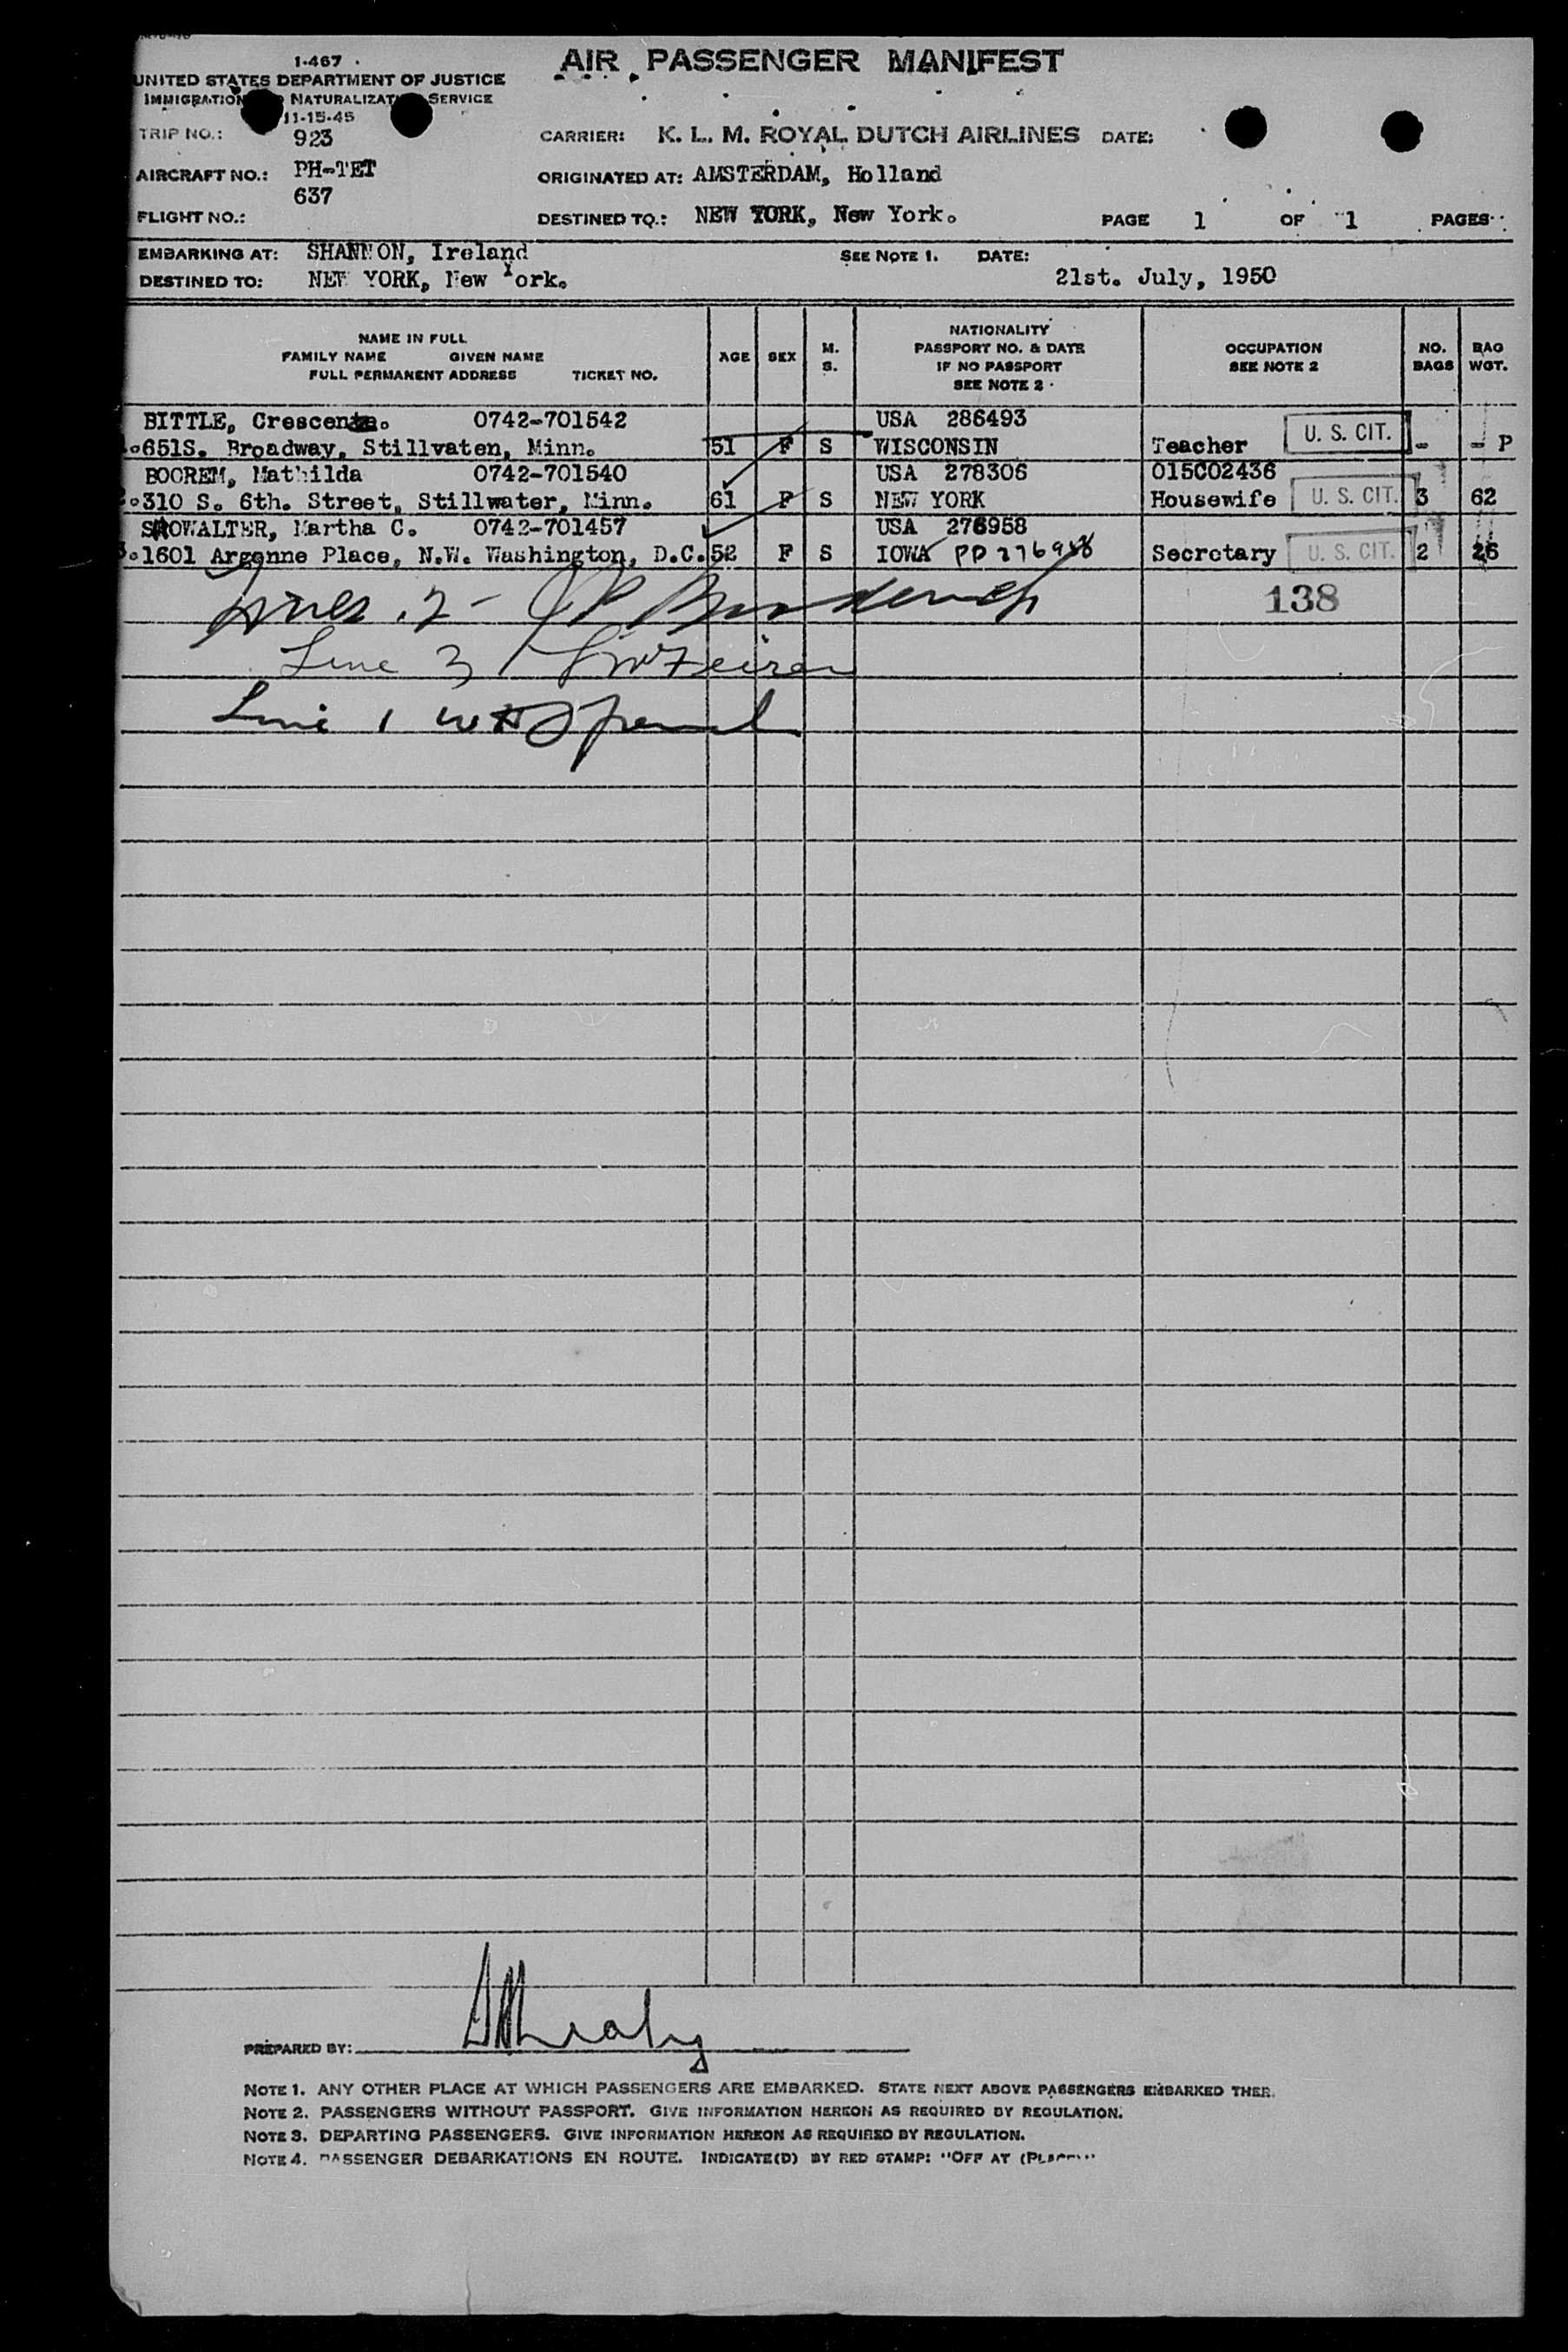 1-467
AIR PASSENGER MANIFEST
UNITED STATES DEPARTMENT OF JUSTICE
IMMIGRATION NATURALIZAT SERVICE
11-15-45
TRIP NO.: 923
CARRIER: K. L. M. ROYAL DUTCH AIRLINES DATE:
AIRCRAFT NO.: PH-TET
ORIGINATED AT: AMSTERDAM, Holland
637
FLIGHT NO.:
DESTINED TO.: NEW YORK, New York.
PAGE 1 OF 1 PAGES
EMBARKING AT: SHANNON, Ireland
SEE NOTE 1. DATE:
DESTINED TO: NEW YORK, New York.
21st. July, 1950
NAME IN FULL
FAMILY NAME GIVEN NAME
FULL PERMANENT ADDRESS TICKET NO.
AGE
SEX
M.
S.
NATIONALITY
PASSPORT NO. & DATE
IF NO PASSPORT
SEE NOTE 2
OCCUPATION
SEE NOTE 2
NO.
BAGS
BAG
WGT.
BITTLE, 0742-701542 USA 286493
651S. Broadway, Stillvaten, Minn. 51 F S WISCONSIN Teacher U. S. CIT. - - P
BOOREM, Mathilda 0742-701540 USA 278306 015C02436
310 S. 6th. Street, Stillwater, Minn. 61 F S NEW YORK Housewife U. S. CIT. 3 62
SHOWALTER, Martha C. 0742-701457 USA 276958
1601 Argonne Place, N.W. Washington, D.C. 52 F S IOWA PP 276958 Secretary U. S. CIT. 2 26
138
Line 3
Line 1
PREPARED BY:
NOTE 1. ANY OTHER PLACE AT WHICH PASSENGERS ARE EMBARKED. STATE NEXT ABOVE PASSENGERS EMBARKED THER.
NOTE 2. PASSENGERS WITHOUT PASSPORT. GIVE INFORMATION HEREON AS REQUIRED BY REGULATION.
NOTE 3. DEPARTING PASSENGERS. GIVE INFORMATION HEREON AS REQUIRED BY REGULATION.
NOTE 4. PASSENGER DEBARKATIONS EN ROUTE. INDICATE(D) BY RED STAMP: "OFF AT